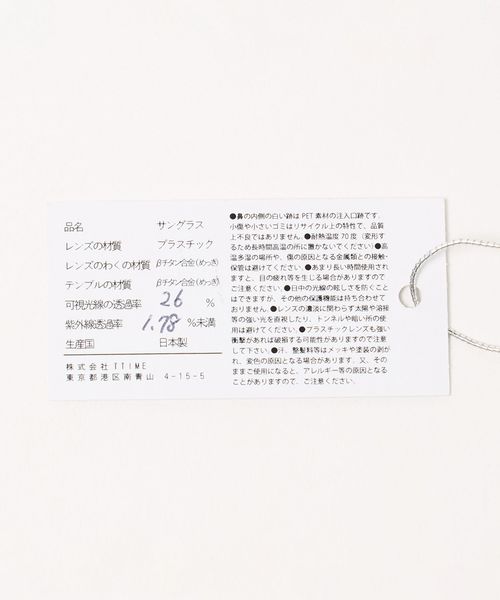 品名 サングラス
レンズの材質 プラスチック
レンズのわくの材質 βチタン合金(めっき)
テンプルの材質 βチタン合金(めっき)
可視光線の透過率 26 %
紫外線透過率 1.78 %未満
生産国 日本製
株式会社TTIME
東京都港区南青山 4-15-5
●鼻の内側の白い跡はPET素材の注入口跡です。
小傷や小さいゴミはリサイクル上の特性で、品質
上不良ではありません。●耐熱温度70度(変形す
るため長時間高温の所に置かないでください)●高
温多湿の場所や、傷の原因となる金属類との接触・
保管は避けてください。●あまり長い時間使用され
ますと、目の疲れ等を生じる場合がありますので
ご注意ください。●日中の光線の眩しさを防ぐこと
はできますが、その他の保護機能は持ち合わせて
おりません。●レンズの濃淡に関わらず太陽や溶接
等の強い光を直視したり、トンネルや暗い所の使
用は避けてください。●プラスチックレンズも強い
衝撃があれば破損する可能性がありますので注意
して下さい。●汗、整髪料等はメッキや塗装の剥が
れ、変色の原因となる場合があります。又、その
ままご使用になると、アレルギー等の原因となる
ことがありますので、ご注意ください。